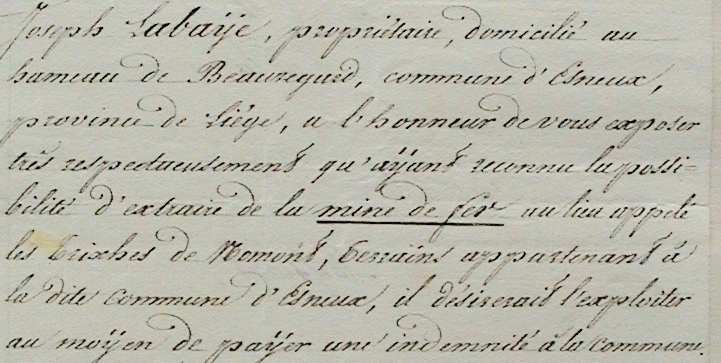 Joseph Labaÿe, propriétaire, domicilié au
hameau de Beauregard, commune d'Esneux,
province de Liége, a l'honneur de vous exposer
très respectueusement qu'aÿant reconnu la possi=
bilité d'extraire de la mine de fer au lieu appelé
les trixhes de Momont, terrains appartenant à
la dite commune d'Esneux, il désirerait l'exploiter
au moÿen de paÿer une indemnité à la commune.